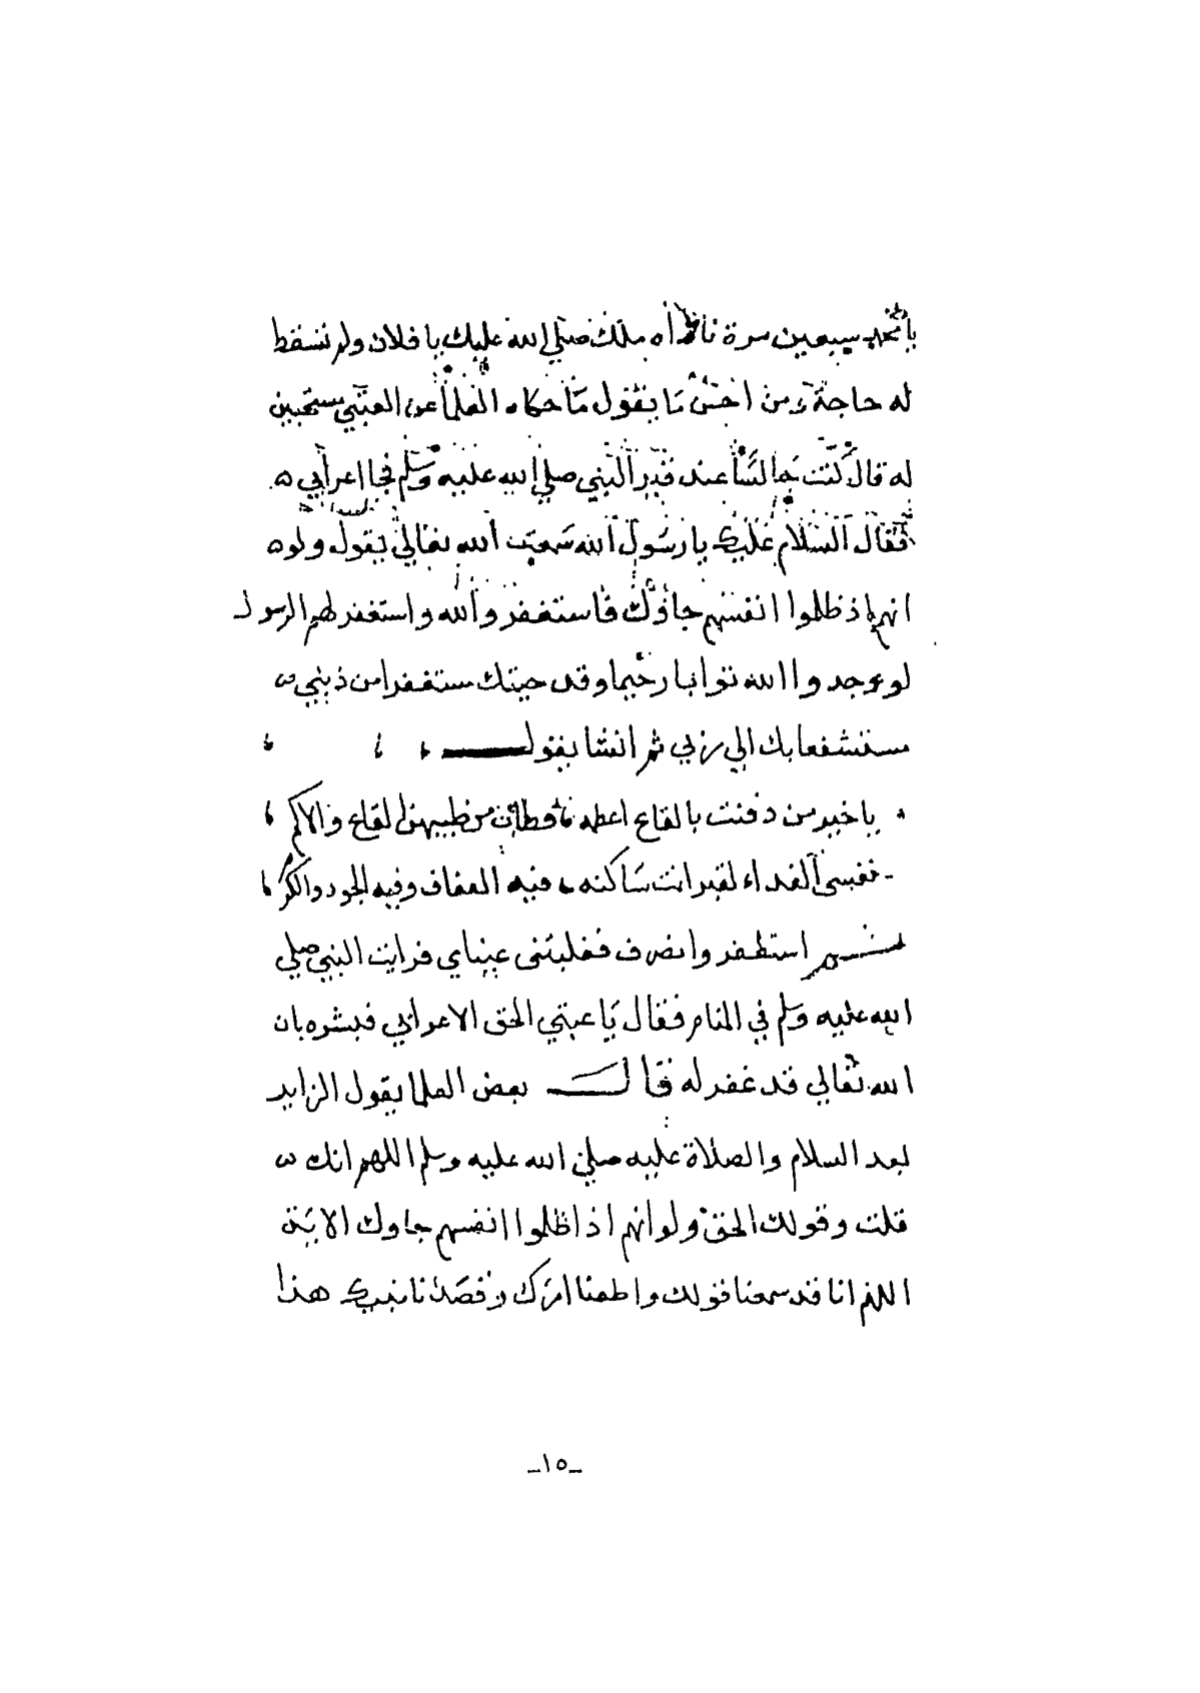 يا محمد سبعين مرة ناداه ملك صلي الله عليك يا فلان ولم تسقط
له حاجة ومن احسن ما يقول ما حكاه العلما عن العتبي مستحبين
له قال كنت جالسا عند قبر النبي صلي الله عليه وسلم فجا اعرابي ه
فقال السلام عليك يا رسول الله سمعت الله تعالي يقول ولو ه
انهم اذ ظلموا انفسهم جاؤك فاستغفروا الله واستغفر لهم الرسول
لوجدوا الله توابا رحيما وقد جيتك مستغفرا من ذنبي
مستشفعا بك الي ربي ثم انشا يقول
يا خير من دفنت بالقاع اعظمه فطاب من طيبهن القاع والاكم
نفسى الفداء لقبر انت ساكنه فيه العفاف وفيه الجود والكرم
ثم استغفر وانصرف فغلبتنى عيناي فرايت النبي صلي
الله عليه وسلم في المنام فقال يا عتبي الحق الاعرابي فبشره بان
الله تعالي قد غفر له قال بعض العلما يقول الزاير
بعد السلام والصلاة عليه صلي الله عليه وسلم اللهم انك
قلت وقولك الحق ولو انهم اذ ظلموا انفسهم جاوك الاية
اللهم انا قد سمعنا قولك واطعنا امرك وقصدنا نبيك هذا
-١٥-